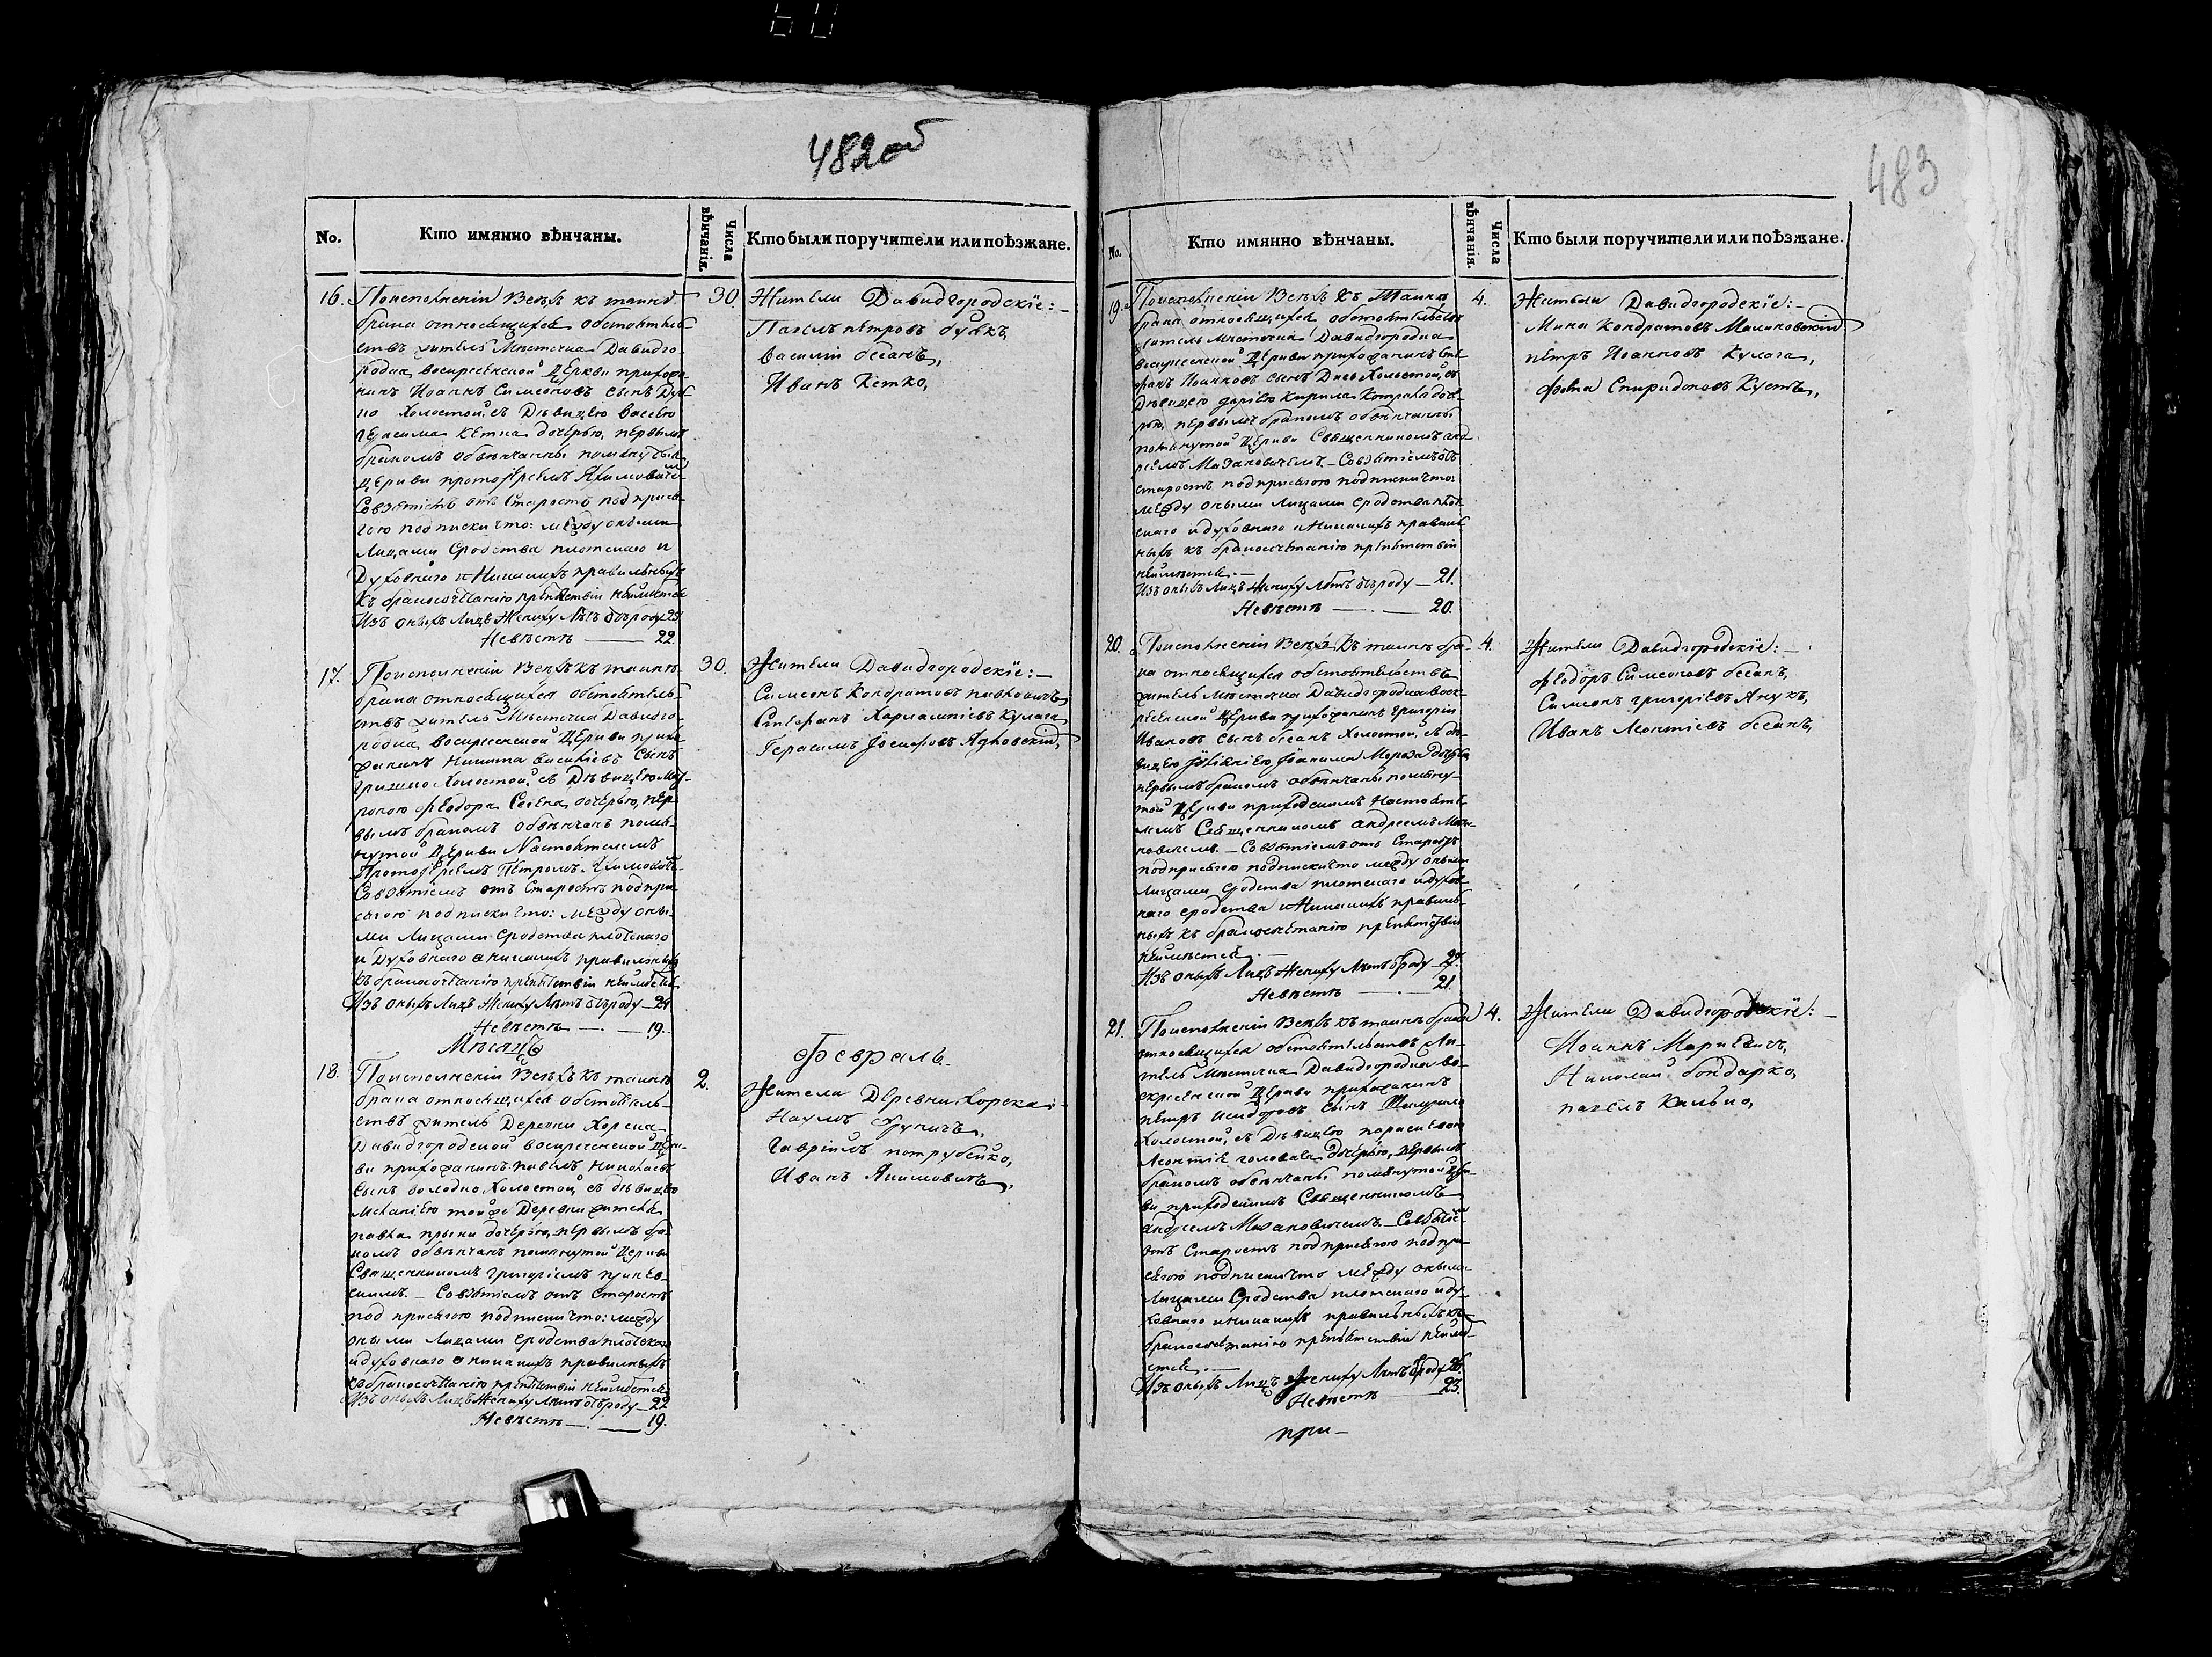 482об
No.
Кто имянно вѣнчаны.
Числа вѣнчанія.
Кто были поручители или поѣзжане.
16. По исполненіи Всѣхъ къ таинѣ 30
брака относящихся обстоятель
ствъ житель Мѣстечка Давидго
родка воскресенской Церкви прихожа
нинъ Иоаннъ Симеоновъ сынъ
холостой, съ Дѣвицею
герасима кетка дочерью, первымъ
бракомъ обвѣнчаны помянутой
Церкви протоіереемъ Якимовичемъ
Совзятіемъ отъ Старостъ подприся
гою подписки что: между оными
Лицами Сродства плотскаго и
Духовнаго и Никакихъ правильныхъ
къ бракосочетанію препятствій неимѣется
Изъ оныхъ Лицъ Жениху Лѣтъ отъроду 23
Невѣстѣ — 22.
Жители Давидгородскіе:—
Павелъ петровъ
василій бѣсанъ,
Иванъ Кетко,
17. По исполненіи Всѣхъ къ таинѣ 30.
брака относящихся обстоятель
ствъ житель Мѣстечка Давидго
родка, воскресенской Церкви прихо
жанинъ никита василіевъ Сынъ
гришко холостой, съ Дѣвицею
феодора дочерью, пер
вымъ бракомъ обвѣнчанъ помя
нутой Церкви Настоятелемъ
Протоіереемъ Петромъ Якимовичемъ
Совзятіемъ отъ Старостъ подпри
сягою подписки что: между оны
ми Лицами Сродства плотскаго
и Духовнаго и никакихъ правильныхъ
къ бракосочетанію препятствій неимѣется
Изъ оныхъ Лицъ Жениху Лѣтъ отъроду — 24
Невѣстѣ — 19.
Жители Давидгородскіе:—
Симеонъ Кондратовъ
Стефанъ Харлампіевъ Кулага
Герасимъ Іосифовъ
Мѣсяцъ
Февраль.
18. По исполненіи Всѣхъ къ таинѣ 2.
брака относящихся обстоятель
ствъ житель Деревни Хорска
Давидгородской воскресенской Церк
ви прихожанинъ павелъ николаевъ
сынъ володко холостой, съ дѣвицею
Меланіею тойже Деревни жителя
павла дочерью, первымъ бра
комъ обвѣнчанъ помянутой Церкви
Священникомъ григоріемъ
— Совзятіемъ отъ Старостъ
под присягою подписки что: между
оными Лицами сродства плотскаго
и духовнаго и никакихъ правильныхъ
къ бракосочетанію препятствій неимѣется
Изъ оныхъ Лицъ Жениху Лѣтъ отъроду — 22
Невѣстѣ — 19.
Жители Деревни Хорска:
Наумъ
Гавріилъ потрубейко,
Иванъ Якимовичъ,
483
No.
Кто имянно вѣнчаны.
Числа вѣнчанія.
Кто были поручители или поѣзжане.
19. По исполненіи Всѣхъ къ Таинѣ 4.
брака относящихся обстоятельствъ
житель мѣстечка Давидгородка
воскресенской Церкви прихожанинъ Сте
фанъ Иоанновъ сынъ Холостой, съ
Дѣвицею даріею Кирила доче
рью, первымъ бракомъ обвѣнчаны
помянутой Церкви Священникомъ анд
реемъ Мазановичемъ.— Совзятіемъ отъ
старостъ подприсягою подписки что:
между оными Лицами сродства плот
скаго и духовнаго и Никакихъ правиль
ныхъ къ бракосочетанію препятствій
неимѣется.—
Изъ оныхъ Лицъ Жениху Лѣтъ отъроду — 21.
Невѣстѣ — 20.
Жители Давидгородскіе:—
Мина Кондратовъ Малиновскій
петръ Иоанновъ Кулага,
Фома Спиридоновъ Кустъ,
20. По исполненіи Всѣхъ къ таинѣ бра 4.
ка относящихся обстоятельствъ
житель мѣстечка Давидгородка воск
ресенской Церкви прихожанинъ Григорій
Ивановъ сынъ бѣсанъ Холостой, съ дѣ
вицею Іоакима Мороза дочерью
первымъ бракомъ обвѣнчаны помяну
той Церкви приходскимъ Настояте
лемъ Священникомъ андреемъ Маза
новичемъ.— Совзятіемъ отъ Старостъ
подприсягою подписки что между оными
Лицами сродства плотскаго и духов
наго сродства и Никакихъ правиль
ныхъ къ бракосочетанію препятствій
неимѣется.—
Изъ оныхъ Лицъ Жениху Лѣтъ отроду — 27.
Невѣстѣ — 21.
Жители Давидгородскіе:—
Феодоръ Симеоновъ бѣсанъ,
Симеонъ григоріевъ
Иванъ Леонтіевъ бѣсанъ,
21. По исполненіи Всѣхъ къ таинѣ брака 4.
относящихся обстоятельствъ Жи
тель Мѣстечка Давидгородка во
скресенской Церкви прихожанинъ
петръ исидоровъ сынъ
Холостой, съ Дѣвицею параскевою
Леонтія дочерью, первымъ
бракомъ обвѣнчаны помянутой Церк
ви приходскимъ Священникомъ
андреемъ Мазановичемъ — Совзятіемъ
отъ Старостъ подприсягою подпри
сягою подписки что между оными
Лицами Сродства плотскаго и ду
ховнаго и никакихъ правильныхъ къ
бракосочетанію препятствій неимѣ
ется.—
Изъ оныхъ Лицъ Жениху Лѣтъ отроду 26.
Невѣстѣ 23.
Жители Давидгородскіе:—
Иоаннъ Маркевичъ,
Николай бондарко,
павелъ
при—